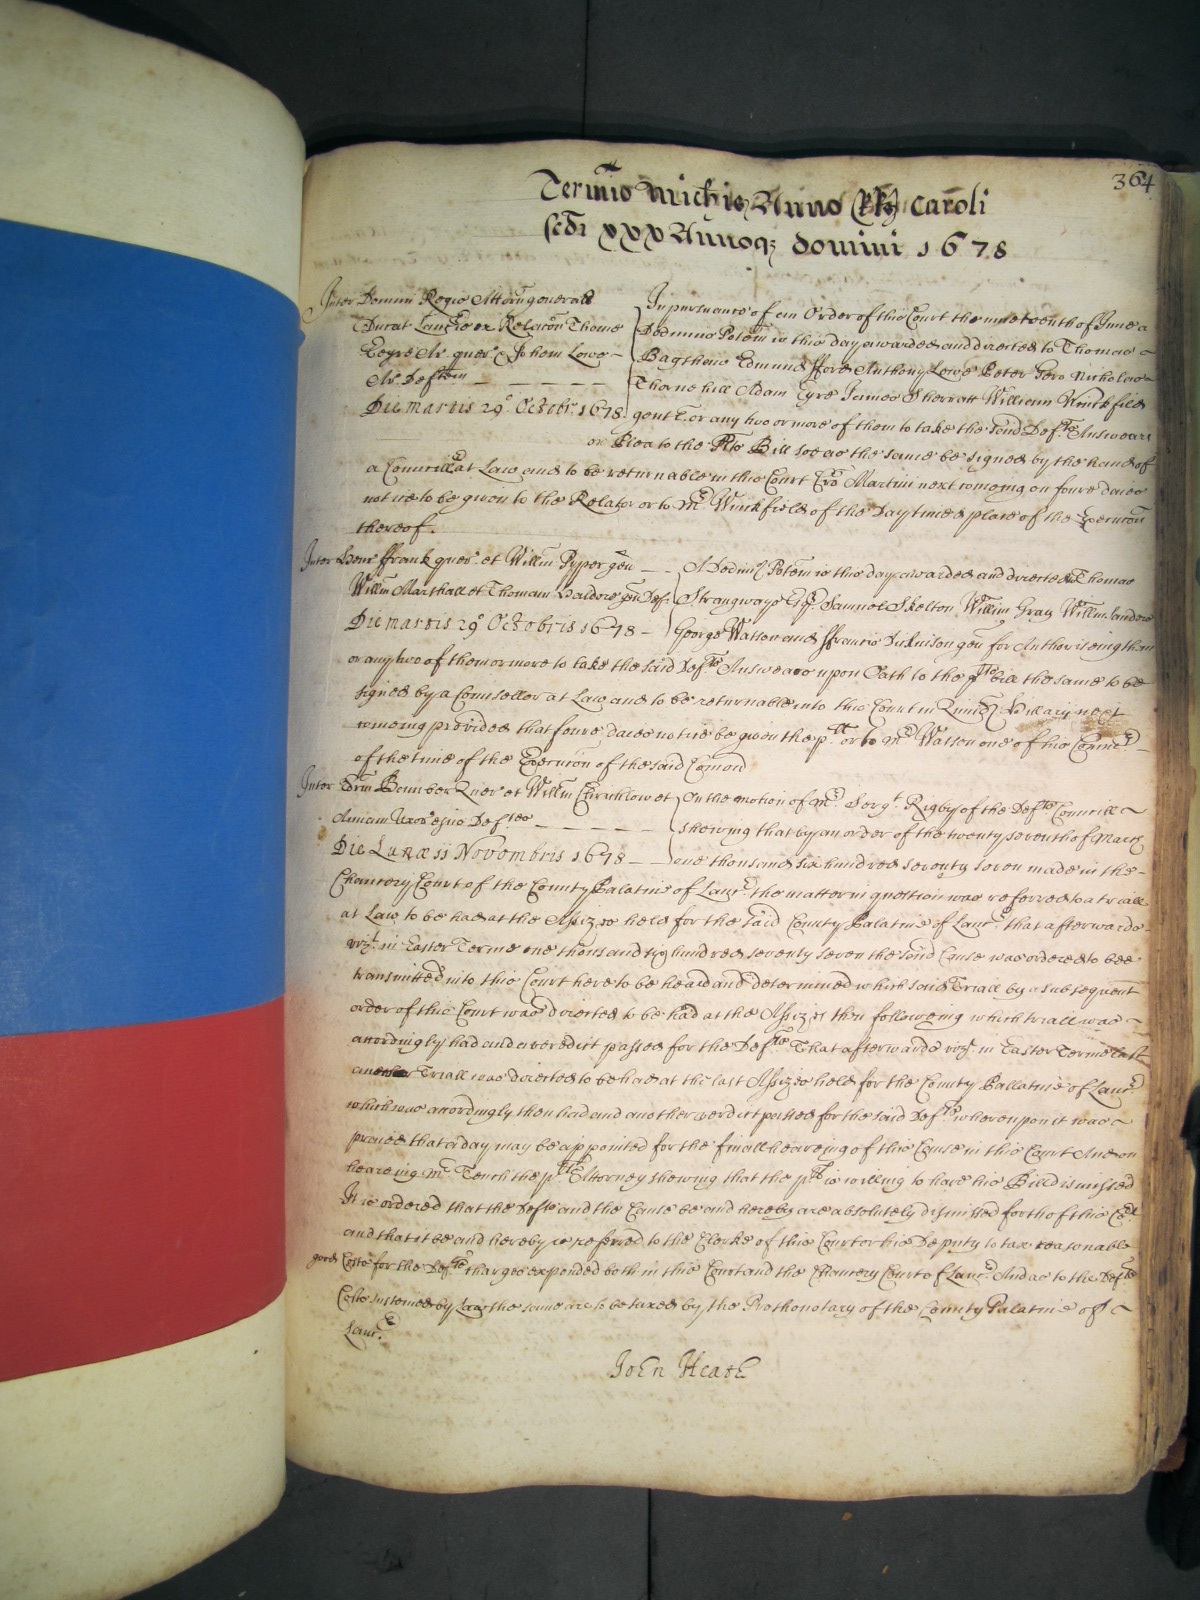 364
Termino Michis Anno RRs Caroli
scdi xxx Annoq Domini 1678
Inter Domini Regis Attorn generall
Ducat Lancr ex Relacon Thome
Eyre Ar quer & Johem Lowe
Ar Deftem
Die martis 29o Octobr: 1678
In pursuance of an Order of this Court the nineteenth of June a
Dedimus Potem is this day awarded and directed to Thomas
Bagshaw Edmund fford Anthony Lowe Peter Nicholas
Thornehill Adam Eyre James Sherratt William Winckfield
gent or any two or more of them to take the said Defts Answeare
or Plea to the Plts Bill soe as the same be signed by the hand of
a Councell at Law and to be returnable in this Court Cro Martini next comeing on foure daies
notice to be given to the Relator or to Mr Winckfield of the Day time & place of the Execucon
thereof.
Inter Henr ffrank quer et Willm Pyper gen
Willm Marshall et Thomam gen Def
Die martis 29o Octobris 1678
A Dedim Potem is this day awarded and directed to Thomas
Strangwayes Esqr Samuel Skelton William Gray Willm
George Watson and ffrancis Dickinson gen for Authoriseing them
or any two of them or more to take the said Defts Answeares upon Oath to the plts bill the same to be
signed by a Counsellor at Law and to be returnable into this Court in Quind Hillary next
comeing provided that foure daies notice be given the plt or to Mr Watson one of his Comrs
of the time of the Execucon of the said Comicon
Inter Bomber Quer et Willm Chricklow et
Annam Uxor ejus Deftes
Die Lunæ 11 Novembris 1678
On the motion of Mr Sergt Rigby of the Defts Councell
shewing that by an order of the twenty seventh of March
one thousand six hundred seventy seven made in the
Chancery Court of the County Palatine of Lancr the matter in question was referred to a triall
at Law to be had at the Assizes held for the said County Palatine of Lancr that afterwards
vizt in Easter Terme one thousand six hundred seventy seven the said Cause was ordered to bee
transmitted into this Court here to be heard and determined which said Triall by a subsequent
order of this Court was directed to be had at the Assizes then following which triall was
accordingly had and a verdict passed for the Defts That afterwards vizt in Easter Terme last
another Triall was directed to be had at the last Assizes held for the County Pallatine of Lancr
which was accordingly then had and another verdict passed for the said Defts whereupon it was
praied that a day may be appointed for the finall heareing of this Cause in this Court And on
heareing Mr Tench the plts Attorney shewing that the plt is willing to have his Bill dismissed
It is ordered that the Defts and the Cause be and hereby are absolutely dismissed forth of this Cort
and that it be and hereby is referred to the Clerke of this Court or his Deputy to tax reasonable
good Costs for the Defts charges expended both in this Court and the Chancery Court of Lancr And as to the Defts
Costs susteined by Law the same are to be taxed by the Prothonotary of the County Palatine of
Lancr
John Heath